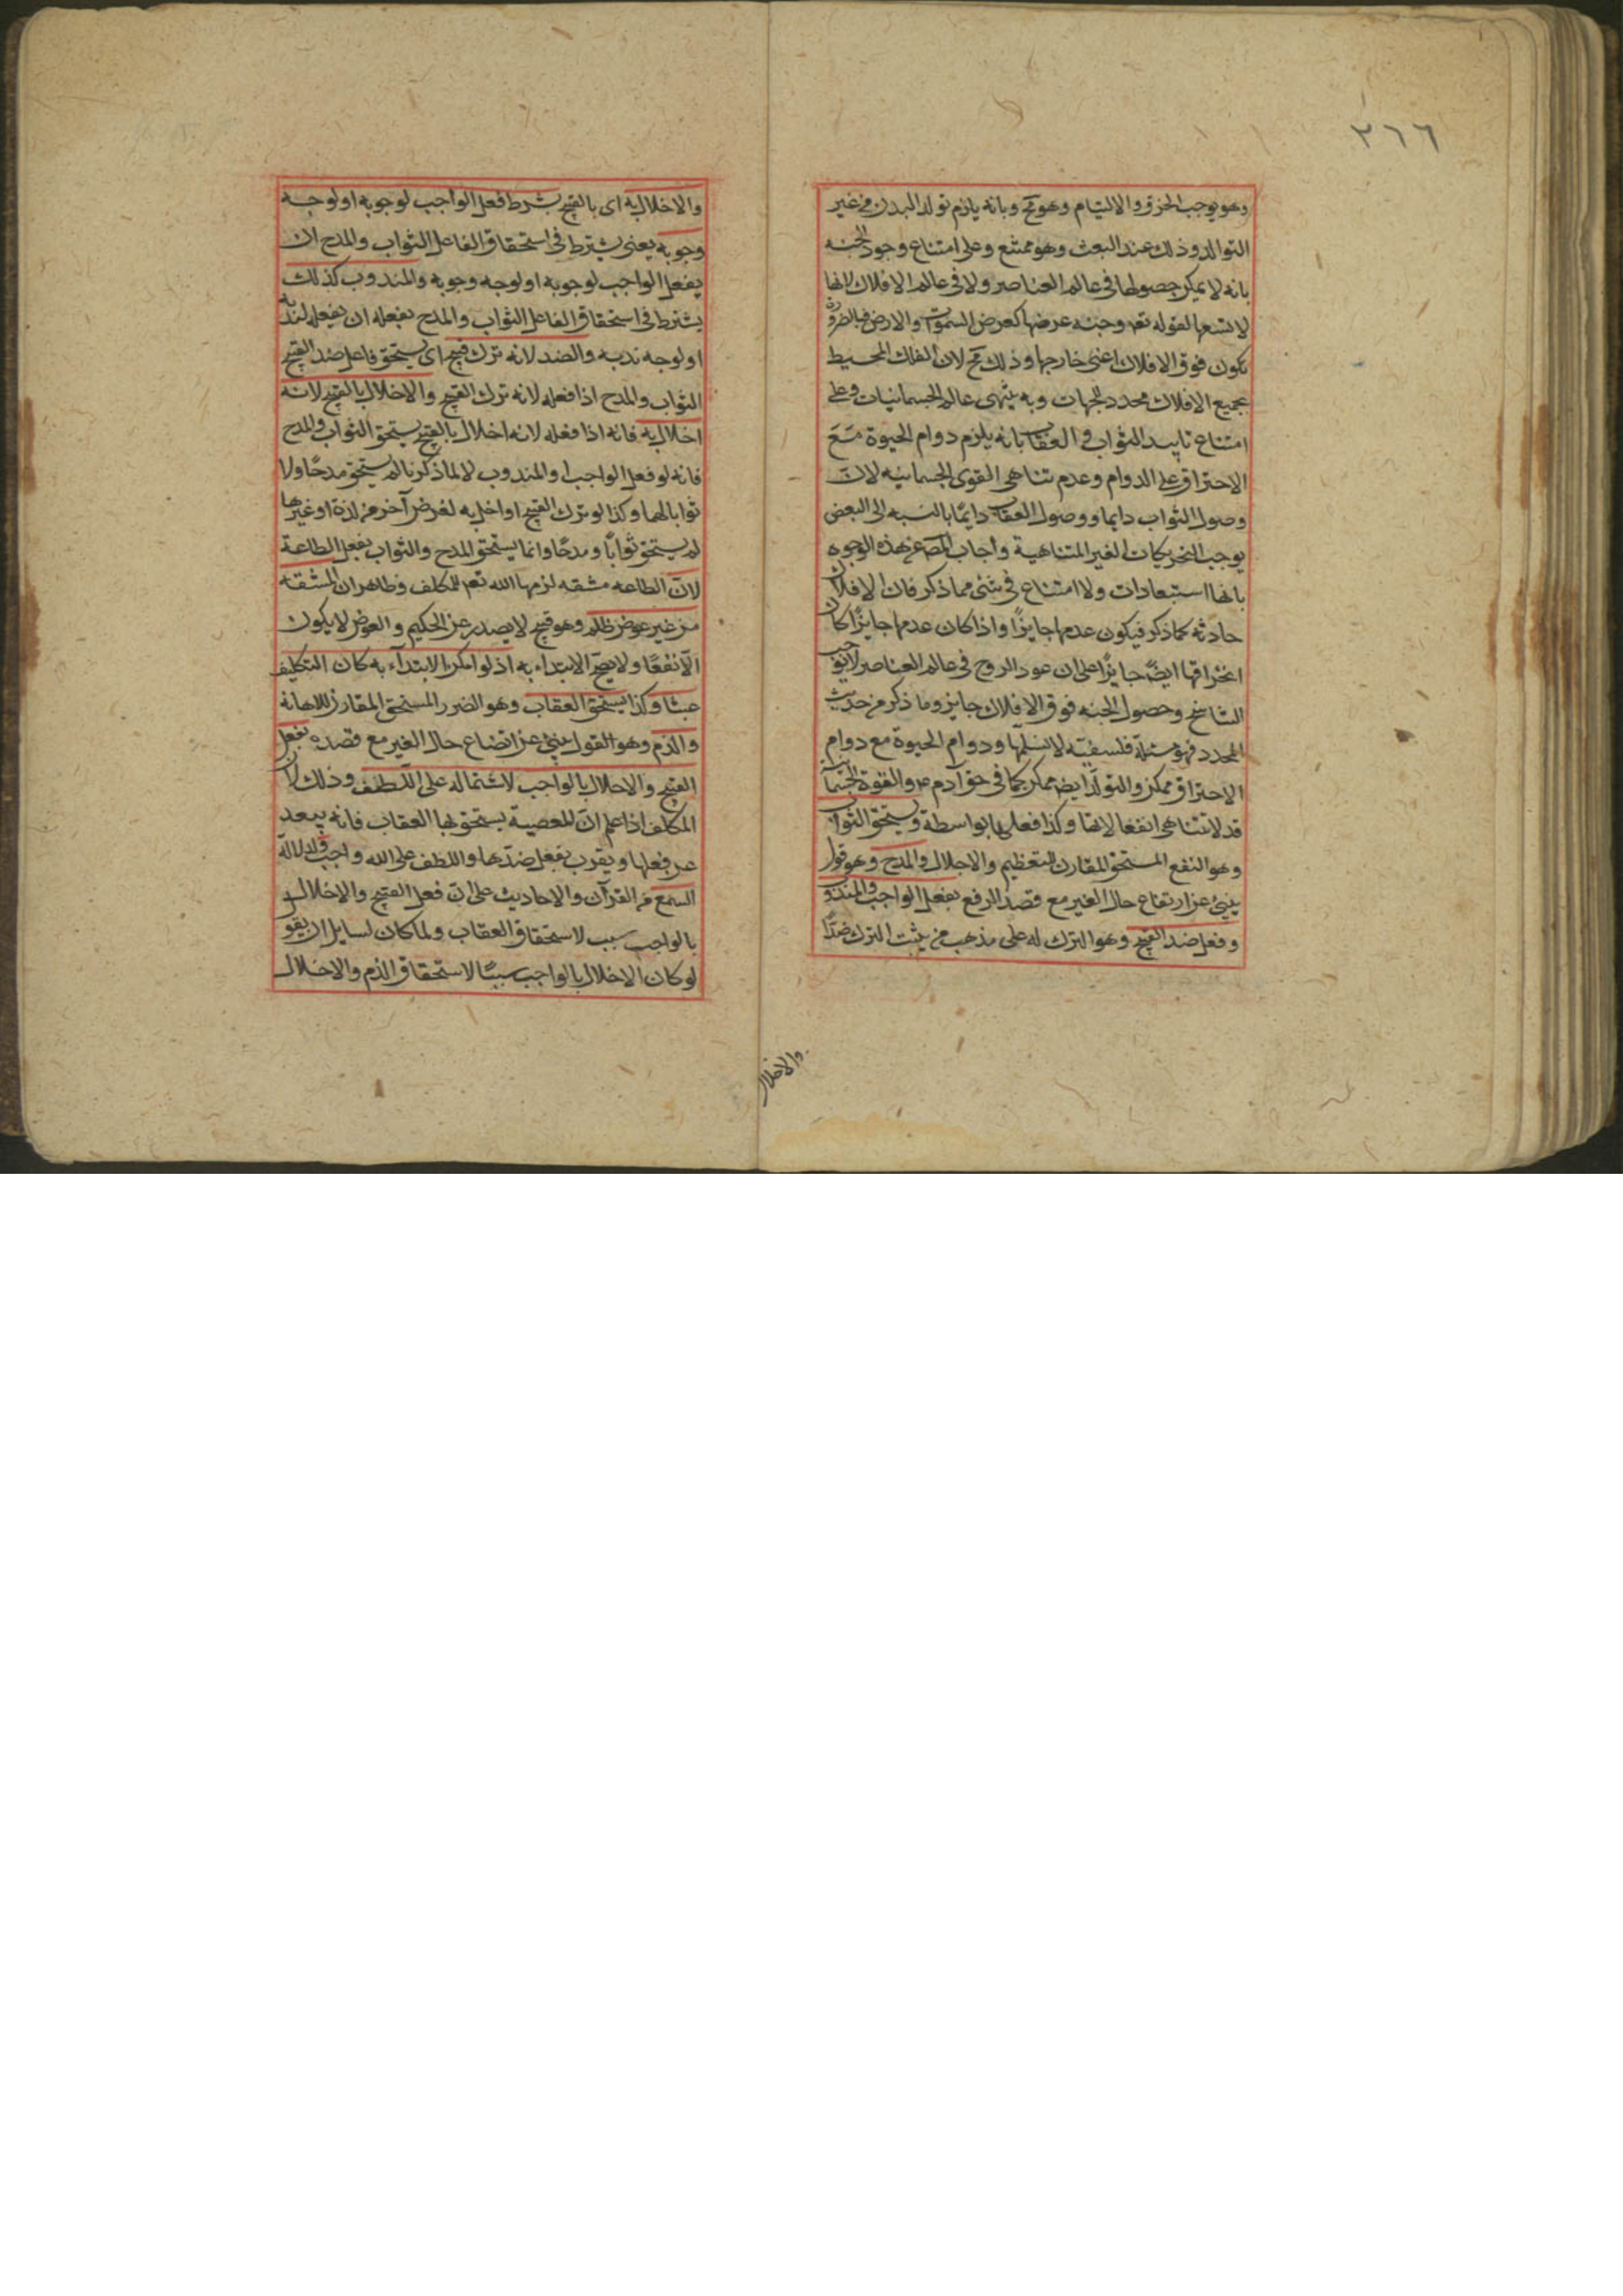 ٣٦٦
وهو يوجب الخرق والالتيام وهو مح وبانه يلزم تولد البدن من غير
التوالد وذلك عند البعث وهو ممتنع وعلى امتناع وجود الجنه
بانه لا يمكن حصولها فى عالم العناصر ولا فى عالم الافلاك لانها
لا تسعها لقوله تعه وجنه عرضها كعرض السموات والارض فبالضرورة
يكون فوق الافلاك اعنى خارجها وذلك مح لان الفلك المحيط
بجميع الافلاك محدد الجهات وبه ينتهى عالم الجسمانيات وعلى
امتناع تاييد الثواب والعقاب بانه يلزم دوام الحيوة مَعَ
الاحتراق على الدوام وعدم تناهى القوى الجسمانيه لانّ
وصول الثواب دايما ووصول العقاب دايمًا بالنسبه الى البعض
يوجب التحريكات الغير المتناهية واجاب المصَ عن هذه الوجوه
بانها استبعادات ولا امتناع فى شئ مما ذكر فان الافلاك
حادثه كما ذكر فيكون عدمها جايزًا واذا كان عدمها جايزًا كان
انخراقها ايضًا جايزًا على ان عود الروح فى عالم العناصر لا يوجب
التناسخ وحصول الجنه فوق الافلاك جايز وما ذكر من حديث
المحدد فهو مسئلة فلسفيّه لا نسلمها ودوام الحيوة مع دوام
الاحتراق ممكن والتولّد ايضَ ممكن كما فى حق آدم ع والقوة الجسمانية
قد لا تتناهى انفعالاتها وكذا فعلها بواسطة ويستحق الثواب
وهو النفع المستحق المقارن للتعظيم والاجلال والمدح وهو قول
ينبئ عن ارتفاع حال الغير مع قصد الرفع بفعل الواجب والمندوب
وفعل ضد القبيح وهو الترك له على مذهب من يثبت الترك ضدًا
والاخلال
والاخلال به اى بالقبيح بشرط فعل الواجب لوجوبه او لوجه
وجوبه يعنى يشترط فى استحقاق الفاعل الثواب والمدح ان
يفعل الواجب لوجوبه او لوجه وجوبه والمندوب كذلك
يشترط فى استحقاق الفاعل الثواب والمدح بفعله ان يفعله لندبه
او لوجه ندبه والضد لانه ترك قبيح اى يستحق فاعل ضد القبيح
الثواب والمدح اذا فعله لانه ترك القبيح والاخلال بالقبيح لانه
اخلال به فانه اذا فعله لانه اخلال بالقبيح يستحق الثواب والمدح
فانه لو فعل الواجب او المندوب لا لما ذكرنا لم يستحق مدحًا ولا
ثوابا لهما وكذا لو ترك القبيح او اخل به لغرض آخر من لذة او غيرها
لم يستحق ثوابًا ومدحًا وانما يستحق المدح والثواب بفعل الطاعة
لانّ الطاعه مشقه لزمها الله تعه للمكلف وظاهر ان المشقه
من غير عوض ظلم وهو قبيح لا يصدر عن الحكيم والعوض لا يكون
الّا نفعًا ولا يصحّ الابتداء به اذ لو امكن الابتدآء به كان التكليف
عبثا وكذا يستحق العقاب وهو الضرر المستحق المقارن للاهانه
والذم وهو القول ينبئ عن اتضاع حال الغير مع قصده بفعل
القبيح والاخلال بالواجب لاشتماله على اللّطف وذلك لان
المكلف اذا علم انّ المعصية يستحق بها العقاب فانه يبعد
عن فعلها ويقرب بفعل ضدّها واللطف على الله واجب ولدلالة
السمع من القرآن والاحاديث على انّ فعل القبيح والاخلال
بالواجب سبب لاستحقاق العقاب ولما كان لسايل ان يقو
لو كان الاخلال بالواجب سببًا لاستحقاق الذم والاخلال